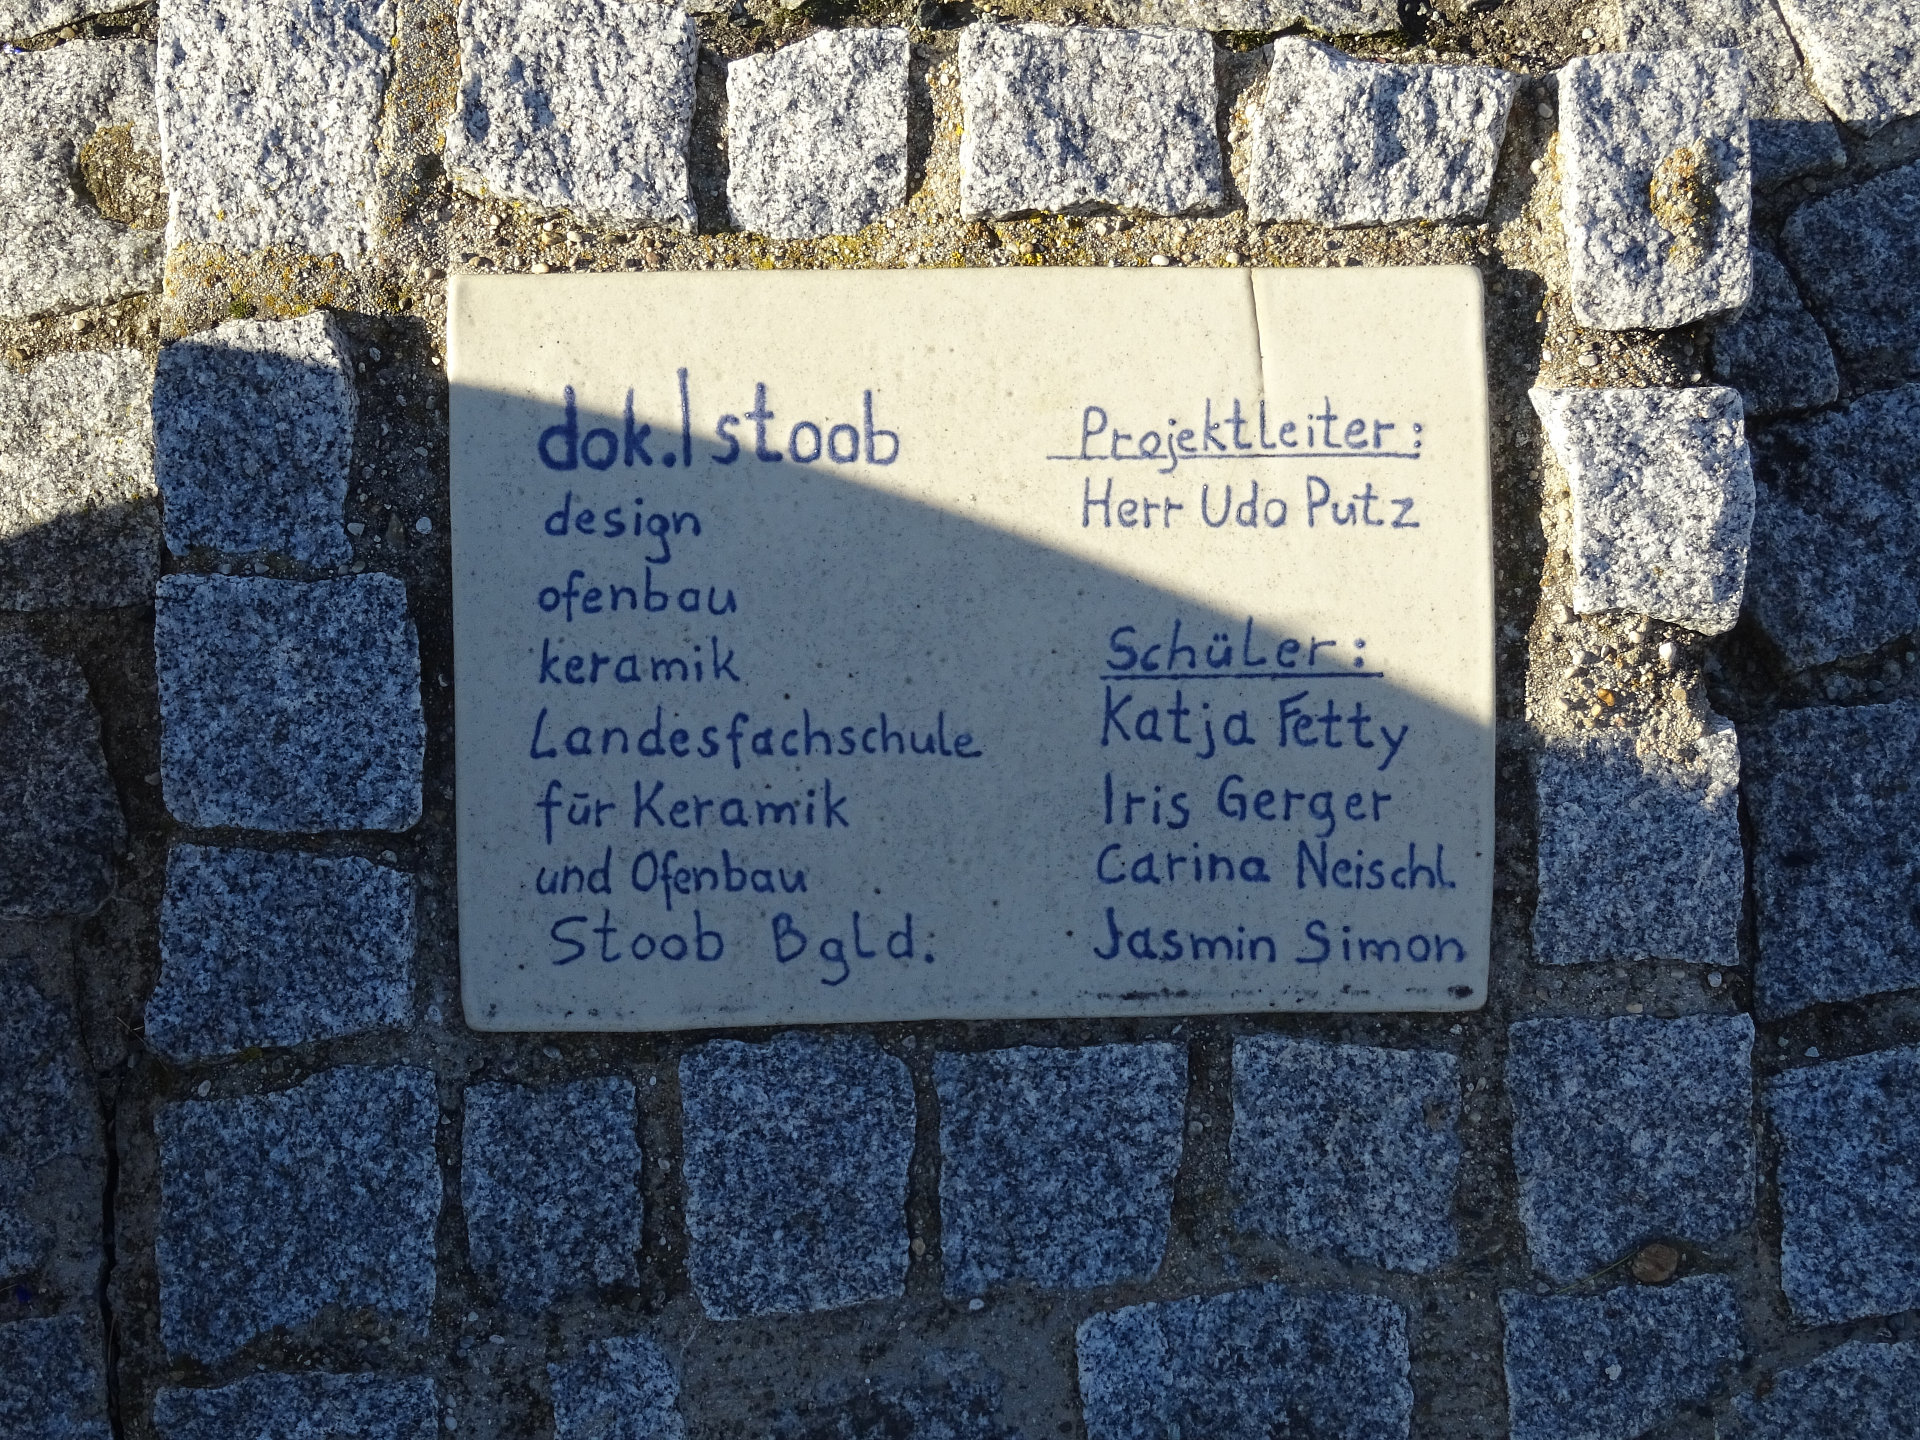 dok.|stoob
design
ofenbau
keramik
Landesfachschule
für Keramik
und Ofenbau
Stoob Bgld.
Projektleiter:
Herr Udo Putz
Schüler:
Katja Fetty
Iris Gerger
Carina Neischl
Jasmin Simon